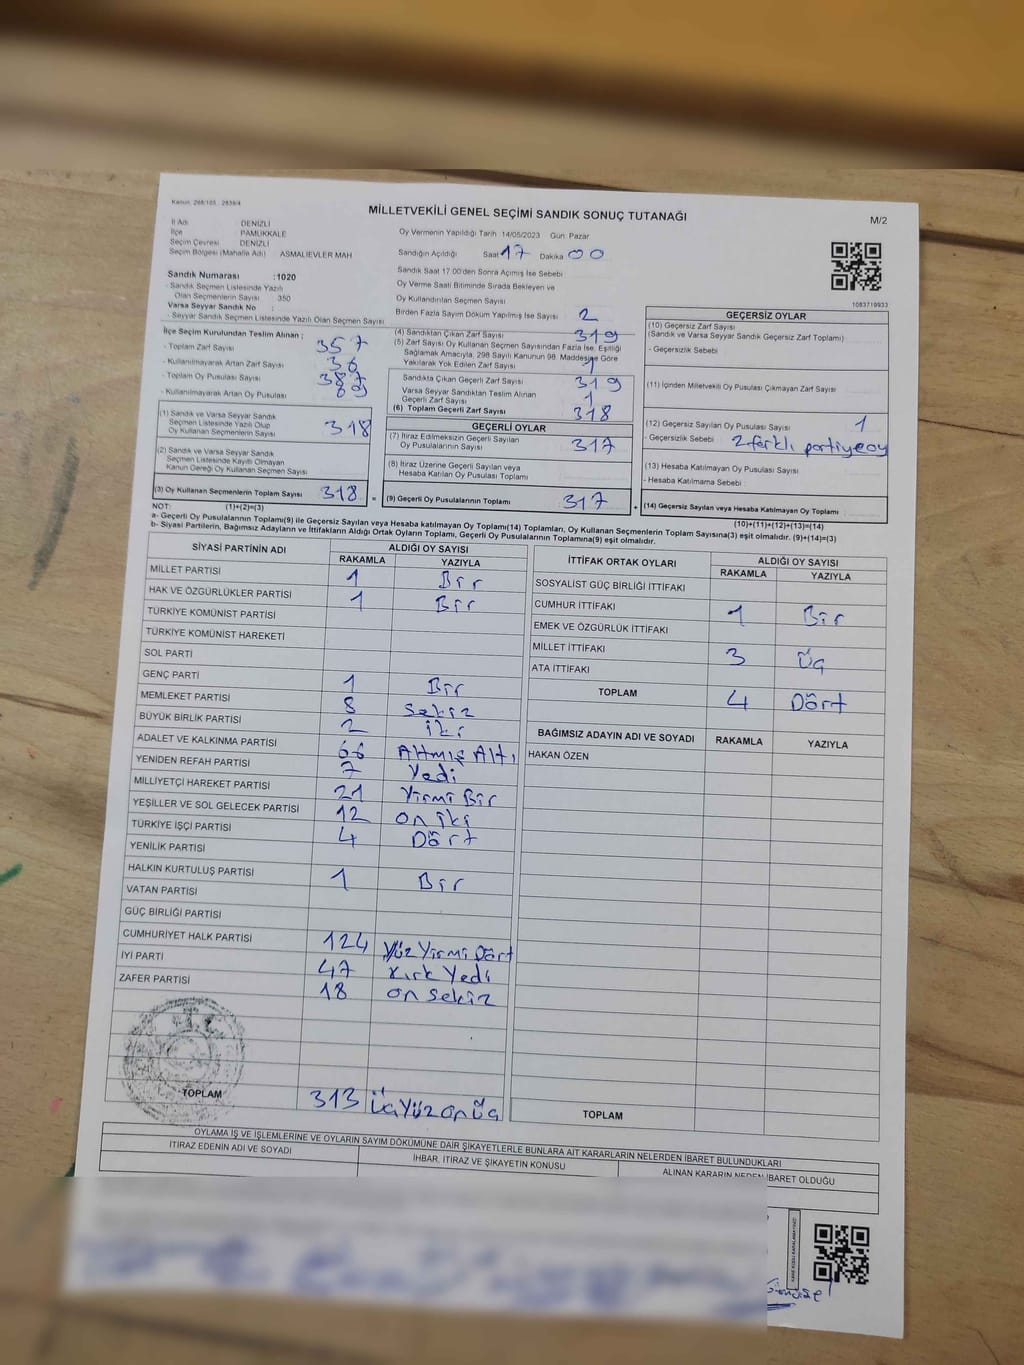 Kanun. 298/105 , 2839/4
MİLLETVEKİLİ GENEL SEÇİMİ SANDIK SONUÇ TUTANAĞI
M/2
İl Adı DENİZLİ
İlçe PAMUKKALE
Seçim Çevresi DENİZLİ
Seçim Bölgesi (Mahalle Adı) ASMALIEVLER MAH
Oy Vermenin Yapıldığı Tarih 14/05/2023 Gün: Pazar
Sandığın Açıldığı Saat 17 Dakika 00
Sandık Saat 17.00'den Sonra Açmış İse Sebebi
Oy Verme Saati Bitiminde Sırada Bekleyen ve
Oy Kullandırılan Seçmen Sayısı
Birden Fazla Sayım Döküm Yapılmış İse Sayısı 2
Sandık Numarası :1020
- Sandık Seçmen Listesinde Yazılı
Olan Seçmenlerin Sayısı 350
Varsa Seyyar Sandık No :
- Seyyar Sandık Seçmen Listesinde Yazılı Olan Seçmen Sayısı
1083719933
İlçe Seçim Kurulundan Teslim Alınan :
- Toplam Zarf Sayısı 357
- Kullanılmayarak Artan Zarf Sayısı 36
- Toplam Oy Pusulası Sayısı
- Kullanılmayarak Artan Oy Pusulası
(1) Sandık ve Varsa Seyyar Sandık
Seçmen Listesinde Yazılı Olup
Oy Kullanan Seçmenlerin Sayısı 318
(2) Sandık ve Varsa Seyyar Sandık
Seçmen Listesinde Kayıtlı Olmayan
Kanun Gereği Oy Kullanan Seçmen Sayısı
(3) Oy Kullanan Seçmenlerin Toplam Sayısı 318 =
(4) Sandıktan Çıkan Zarf Sayısı 319
(5) Zarf Sayısı Oy Kullanan Seçmen Sayısından Fazla İse, Eşitliği
Sağlamak Amacıyla, 298 Sayılı Kanunun 98. Maddesine Göre
Yakılarak Yok Edilen Zarf Sayısı 1
Sandıkta Çıkan Geçerli Zarf Sayısı 319
Varsa Seyyar Sandıktan Teslim Alınan
Geçerli Zarf Sayısı 1
(6) Toplam Geçerli Zarf Sayısı 318
GEÇERLİ OYLAR
(7) İtiraz Edilmeksizin Geçerli Sayılan
Oy Pusulalarının Sayısı 317
(8) İtiraz Üzerine Geçerli Sayılan veya
Hesaba Katılan Oy Pusulası Toplamı
(9) Geçerli Oy Pusulalarının Toplamı 317 +
GEÇERSİZ OYLAR
(10) Geçersiz Zarf Sayısı
(Sandık ve Varsa Seyyar Sandık Geçersiz Zarf Toplamı)
- Geçersizlik Sebebi
(11) İçinden Milletvekili Oy Pusulası Çıkmayan Zarf Sayısı
(12) Geçersiz Sayılan Oy Pusulası Sayısı 1
- Geçersizlik Sebebi 2 farklı partiye oy
(13) Hesaba Katılmayan Oy Pusulası Sayısı
- Hesaba Katılmama Sebebi
(14) Geçersiz Sayılan veya Hesaba Katılmayan Oy Toplamı
NOT: (1)+(2)=(3) (10)+(11)+(12)+(13)=(14)
a- Geçerli Oy Pusulalarının Toplamı(9) ile Geçersiz Sayılan veya Hesaba katılmayan Oy Toplamı(14) Toplamları, Oy Kullanan Seçmenlerin Toplam Sayısına(3) eşit olmalıdır. (9)+(14)=(3)
b- Siyasi Partilerin, Bağımsız Adayların ve İttifakların Aldığı Ortak Oyların Toplamı, Geçerli Oy Pusulalarının Toplamına(9) eşit olmalıdır.
SİYASİ PARTİNİN ADI ALDIĞI OY SAYISI
RAKAMLA YAZIYLA
MİLLET PARTİSİ 1 Bir
HAK VE ÖZGÜRLÜKLER PARTİSİ 1 Bir
TÜRKİYE KOMÜNİST PARTİSİ
TÜRKİYE KOMÜNİST HAREKETİ
SOL PARTİ
GENÇ PARTİ 1 Bir
MEMLEKET PARTİSİ 8 Sekiz
BÜYÜK BİRLİK PARTİSİ 2 iki
ADALET VE KALKINMA PARTİSİ 66 Altmış Altı
YENİDEN REFAH PARTİSİ 7 Yedi
MİLLİYETÇİ HAREKET PARTİSİ 21 Yirmi Bir
YEŞİLLER VE SOL GELECEK PARTİSİ 12 on iki
TÜRKİYE İŞÇİ PARTİSİ 4 Dört
YENİLİK PARTİSİ
HALKIN KURTULUŞ PARTİSİ 1 Bir
VATAN PARTİSİ
GÜÇ BİRLİĞİ PARTİSİ
CUMHURİYET HALK PARTİSİ 124 Yüz Yirmi Dört
İYİ PARTİ 47 Kırk Yedi
ZAFER PARTİSİ 18 on sekiz
TOPLAM 313 üç Yüz on üç
İTTİFAK ORTAK OYLARI ALDIĞI OY SAYISI
RAKAMLA YAZIYLA
SOSYALİST GÜÇ BİRLİĞİ İTTİFAKI
CUMHUR İTTİFAKI 1 Bir
EMEK VE ÖZGÜRLÜK İTTİFAKI
MİLLET İTTİFAKI 3 Üç
ATA İTTİFAKI
TOPLAM 4 Dört
BAĞIMSIZ ADAYIN ADI VE SOYADI RAKAMLA YAZIYLA
HAKAN ÖZEN
TOPLAM
OYLAMA İŞ VE İŞLEMLERİNE VE OYLARIN SAYIM DÖKÜMÜNE DAİR ŞİKAYETLERLE BUNLARA AİT KARARLARIN NELERDEN İBARET BULUNDUKLARI
İTİRAZ EDENİN ADI VE SOYADI
İHBAR, İTİRAZ VE ŞİKAYETİN KONUSU
ALINAN KARARIN NEDEN İBARET OLDUĞU